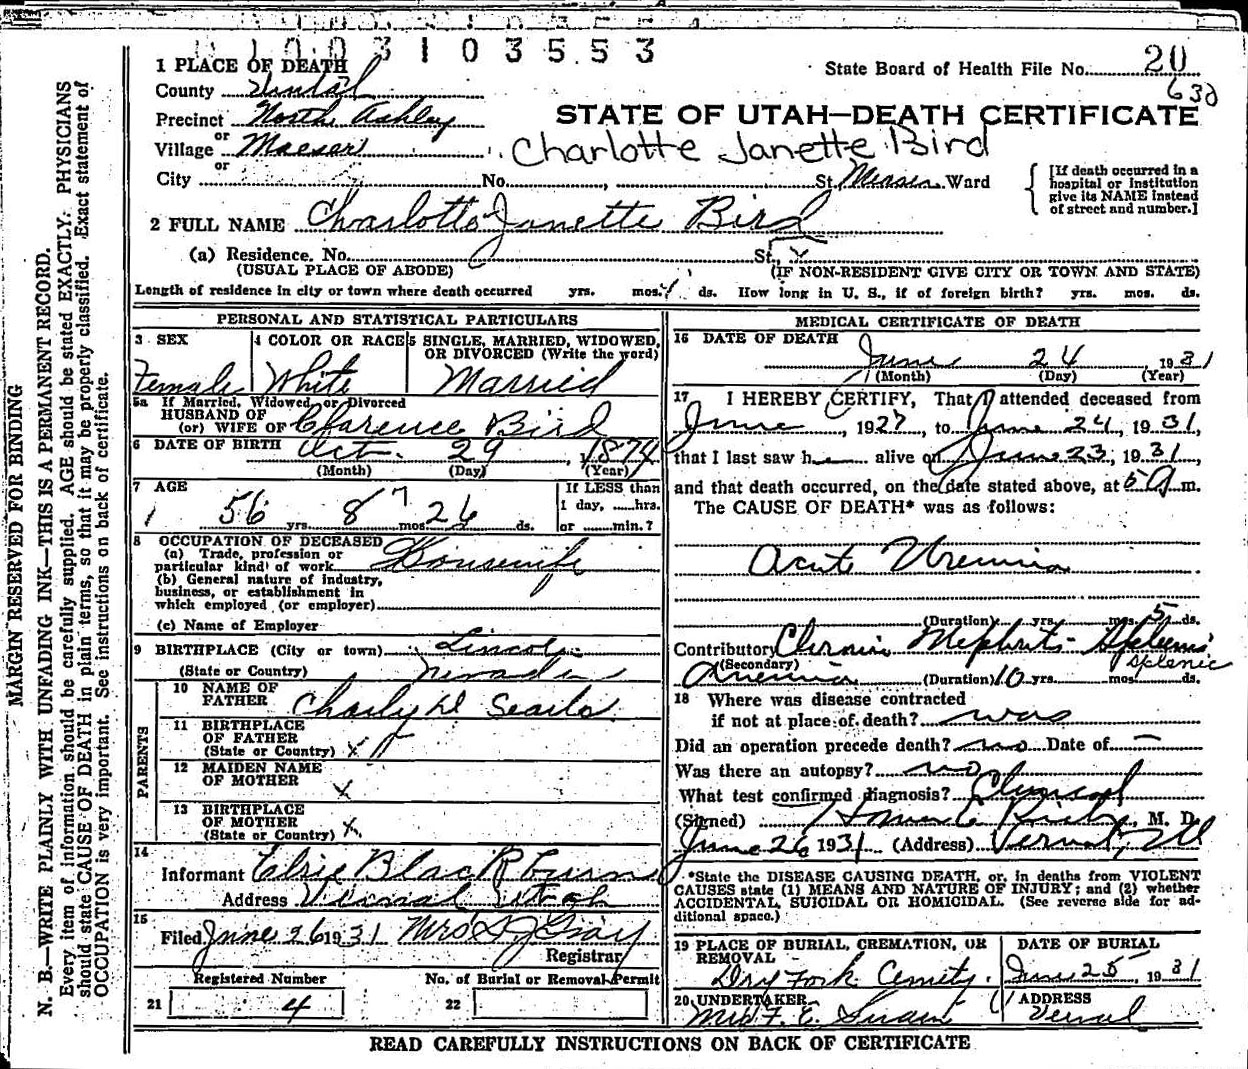 1 0 0 3 1 0 3 5 5 3
1 PLACE OF DEATH
State Board of Health File No. 20
630
County Uintah
Precinct North Ashley
STATE OF UTAH—DEATH CERTIFICATE
or
Village Maeser
Charlotte Janette Bird
or
City No. St. Maeser Ward
[If death occurred in a hospital or institution give its NAME instead of street and number.]
2 FULL NAME Charlotte Janette Bird
(a) Residence. No. St.
(USUAL PLACE OF ABODE)
(IF NON-RESIDENT GIVE CITY OR TOWN AND STATE)
Length of residence in city or town where death occurred yrs. mos. ds. How long in U. S., if of foreign birth? yrs. mos. ds.
PERSONAL AND STATISTICAL PARTICULARS
3 SEX
4 COLOR OR RACE
5 SINGLE, MARRIED, WIDOWED, OR DIVORCED (Write the word)
Female White Married
5a If Married, Widowed, or Divorced
HUSBAND OF
(or) WIFE OF Clarence Bird
6 DATE OF BIRTH Oct. 29, 1874
(Month) (Day) (Year)
7 AGE
If LESS than
1 day, ......hrs.
56 yrs. 8 7 mos. 26 ds.
or ......min.?
8 OCCUPATION OF DECEASED
(a) Trade, profession or
particular kind of work Housewife
(b) General nature of industry,
business, or establishment in
which employed (or employer)
(c) Name of Employer
9 BIRTHPLACE (City or town) Lincoln
(State or Country) Nevada
PARENTS
10 NAME OF
FATHER Charly D Searls
11 BIRTHPLACE
OF FATHER
(State or Country) x
12 MAIDEN NAME
OF MOTHER x
13 BIRTHPLACE
OF MOTHER
(State or Country) x
14
Informant Elsie Blackburn
Address Vernal Utah
15
Filed June 26 1931 Mrs S J Gray
Registrar
Registered Number
No. of Burial or Removal Permit
21 4
22
MEDICAL CERTIFICATE OF DEATH
16 DATE OF DEATH
June 24 1931
(Month) (Day) (Year)
17 I HEREBY CERTIFY, That I attended deceased from
June, 1927, to June 24, 1931,
that I last saw her alive on June 23, 1931,
and that death occurred, on the date stated above, at 5 a m.
The CAUSE OF DEATH* was as follows:
Acute Uremia
(Duration) yrs. mos. 5 ds.
Contributory Chronic Nephritis Splenic
Splenic
(Secondary)
Anemia (Duration) 10 yrs. mos. ds.
18 Where was disease contracted
if not at place of death? was
Did an operation precede death? no Date of —
Was there an autopsy? no
What test confirmed diagnosis? Clinical
(Signed) Homer E, M. D.
June 26 1931 (Address) Vernal, Ut
*State the DISEASE CAUSING DEATH, or, in deaths from VIOLENT
CAUSES state (1) MEANS AND NATURE OF INJURY; and (2) whether
ACCIDENTAL, SUICIDAL OR HOMICIDAL. (See reverse side for ad-
ditional space.)
19 PLACE OF BURIAL, CREMATION, OR
REMOVAL
DATE OF BURIAL
Dry Fork Cemety. June 25, 1931
20 UNDERTAKER
ADDRESS
Mrs F. E. Swain Vernal
READ CAREFULLY INSTRUCTIONS ON BACK OF CERTIFICATE
MARGIN RESERVED FOR BINDING
N. B.—WRITE PLAINLY WITH UNFADING INK—THIS IS A PERMANENT RECORD.
Every item of information should be carefully supplied. AGE should be stated EXACTLY. PHYSICIANS
should state CAUSE OF DEATH in plain terms, so that it may be properly classified. Exact statement of
OCCUPATION is very important. See instructions on back of certificate.